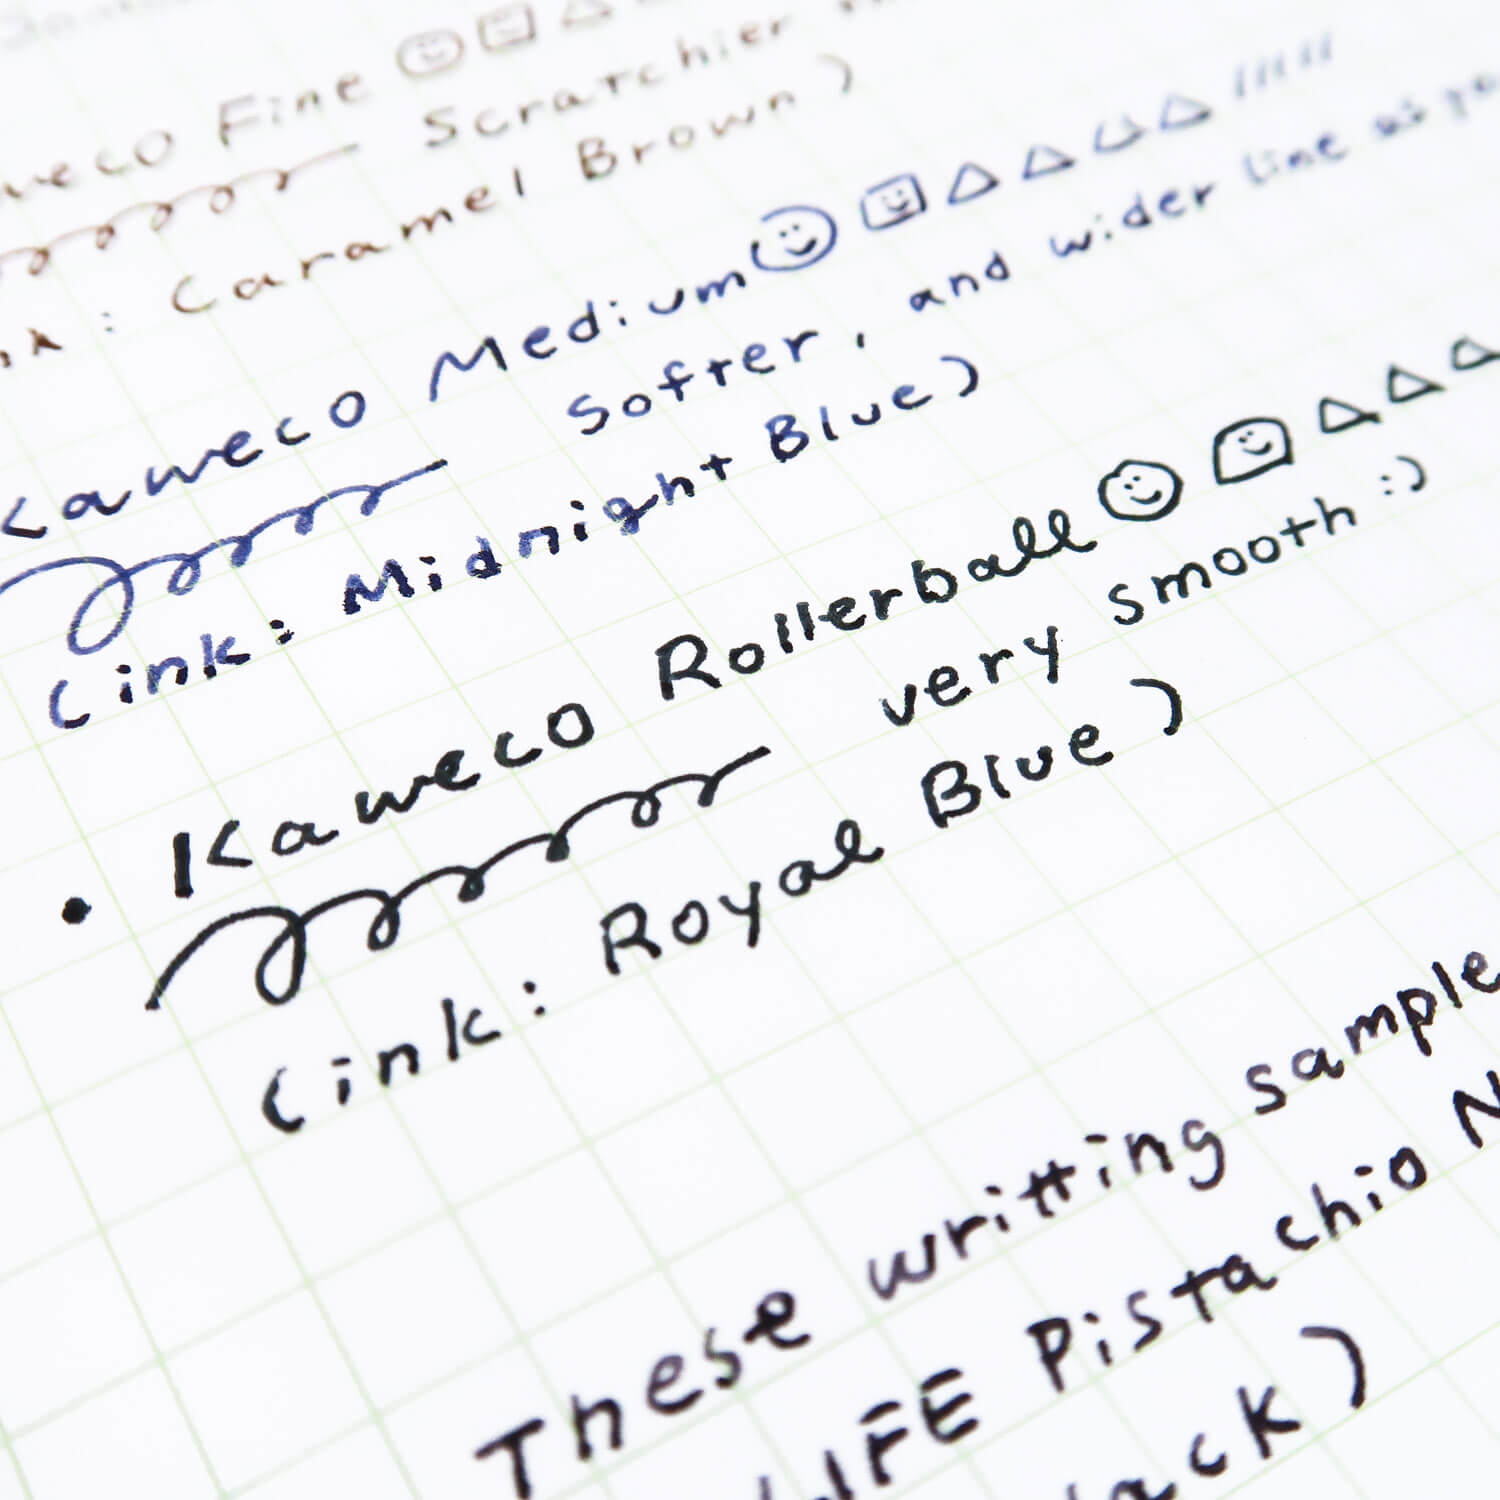 Fine
Scratchier
: Caramel Brown)
Kaweco Medium
Softer, and wider line
(ink: Midnight Blue)
• Kaweco Rollerball
very smooth :)
(ink: Royal Blue)
These writting sample
LIFE Pistachio N
ack)